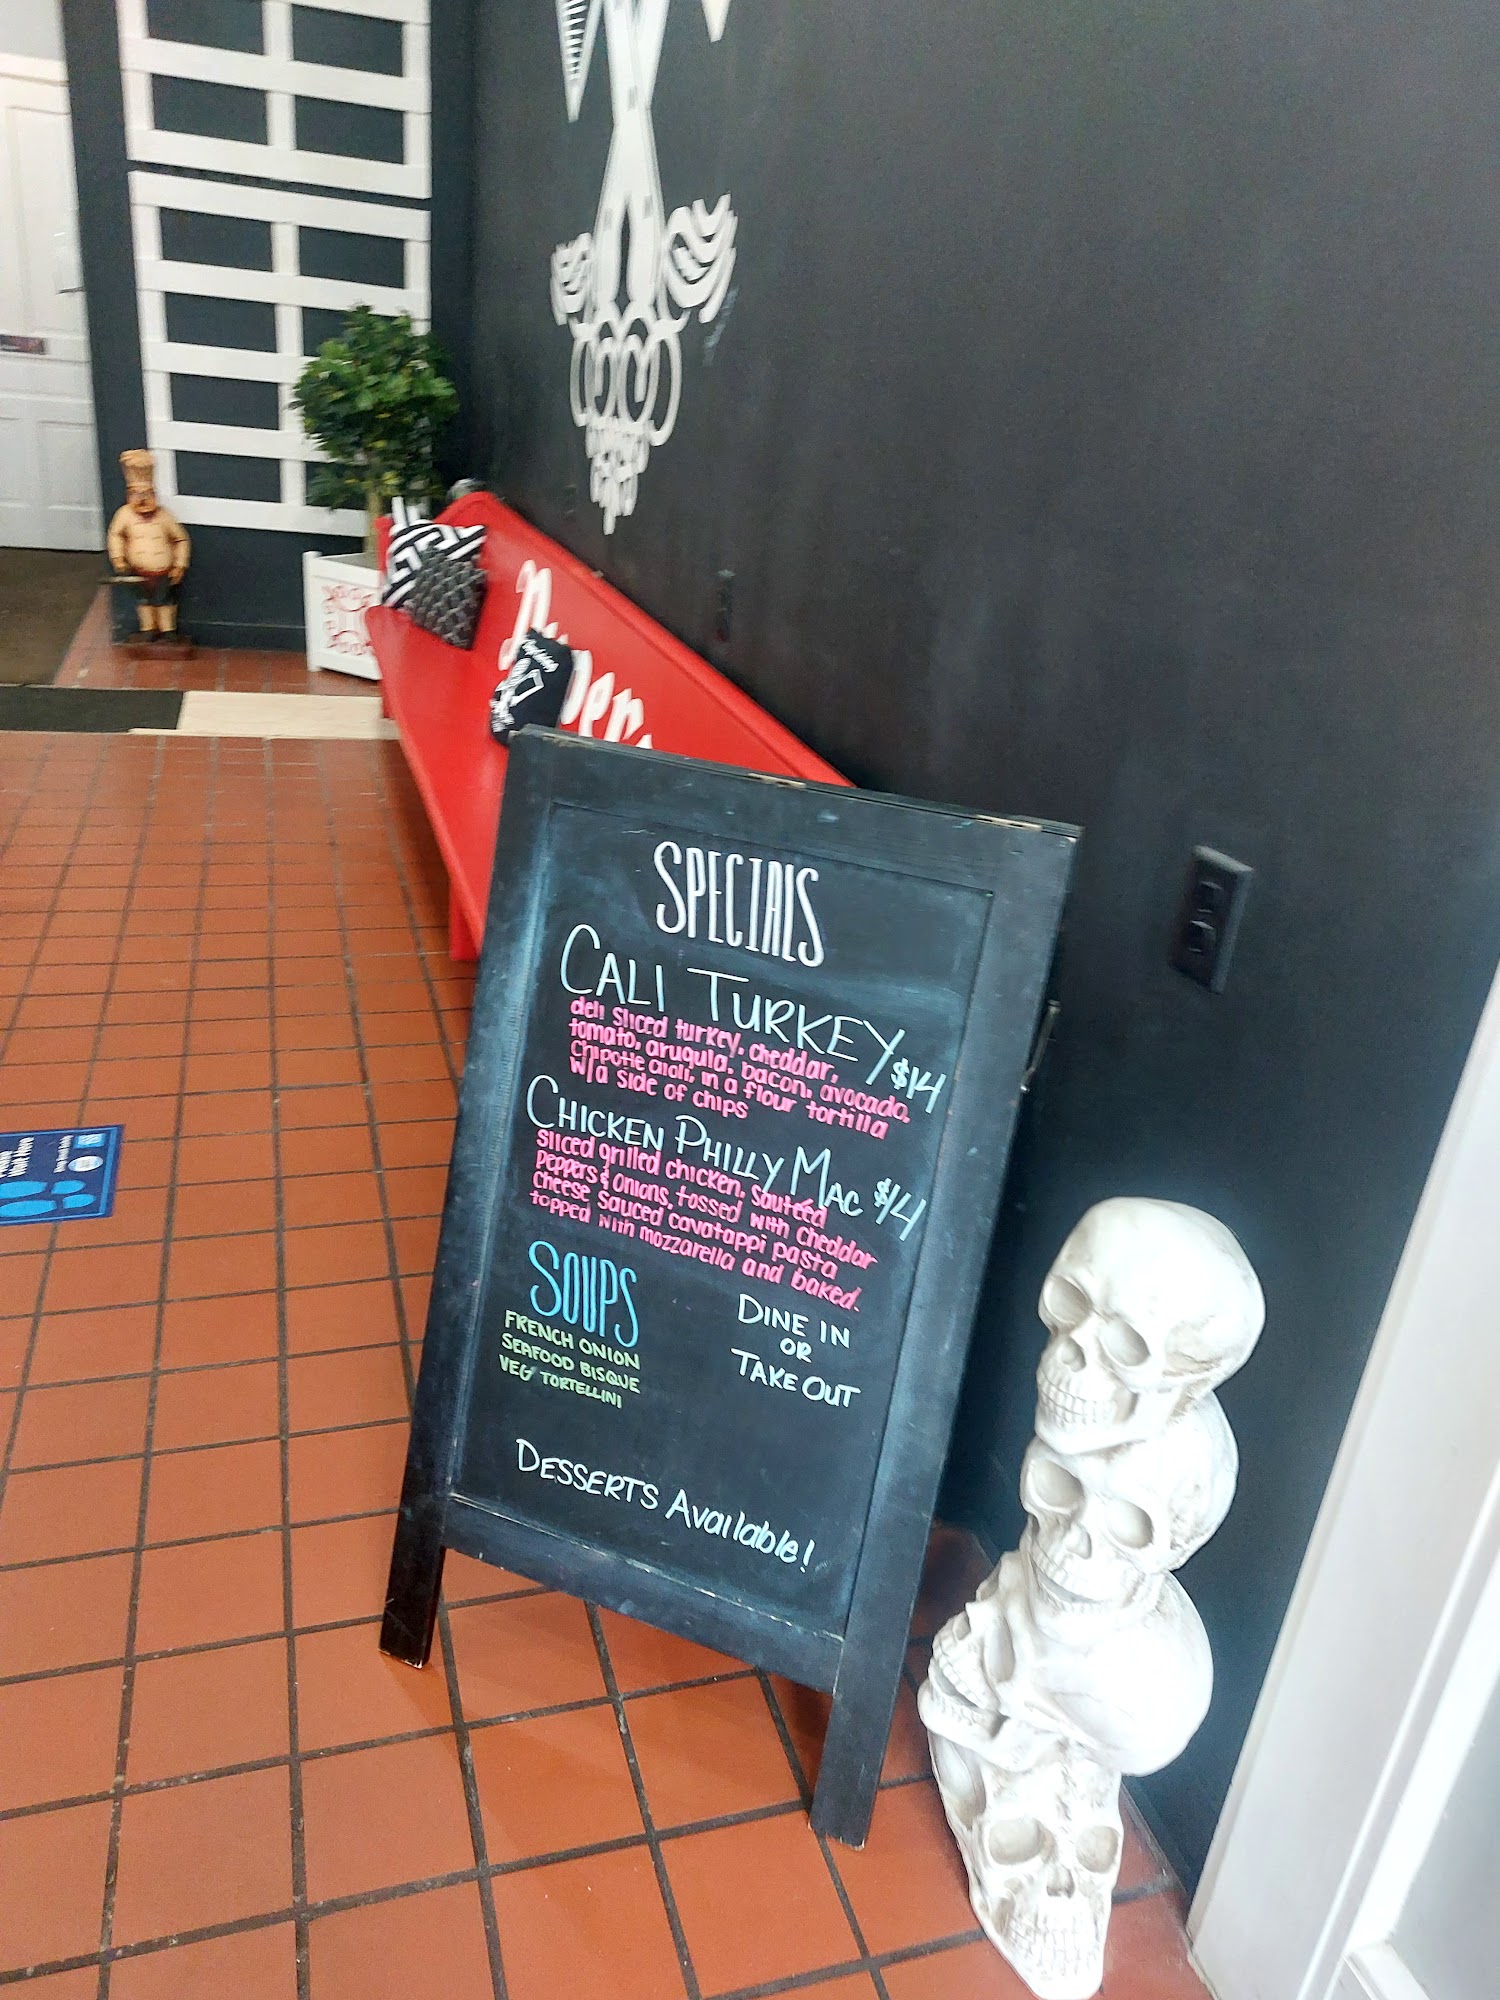 SPECIALS
CALI TURKEY $14
deli sliced turkey, cheddar,
tomato, arugula, bacon, avocado,
chipotle aioli, in a flour tortilla
w/a side of chips
CHICKEN PHILLY MAC $14
sliced grilled chicken, sautéed
peppers & onions, tossed with cheddar
cheese sauced cavatappi pasta
topped with mozzarella and baked.
SOUPS
FRENCH ONION
SEAFOOD BISQUE
VEG TORTELLINI
DINE IN
OR
TAKE OUT
DESSERTS Available!